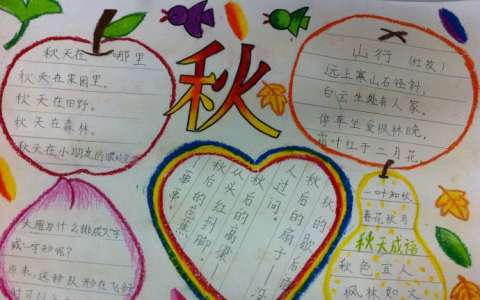 秋天在 哪里
秋天在
园里,
秋天在田野。
秋天在森林。
秋天在小朋友的眼
秋
山行
远上寒山石径斜,
白云生处有人家。
停车坐爱枫林晚,
霜叶红于二月花。
秋的歇后语
秋后的扇子——没
人过问。
秋后的高粱——
从头红到脚。
秋后的芭蕉——一
串一串的。
大雁为什么排成人字
或一字形呢?
原来,这种队形在飞行
时可以
一叶知秋
春花秋月
秋天成语
秋色宜人
枫林如火